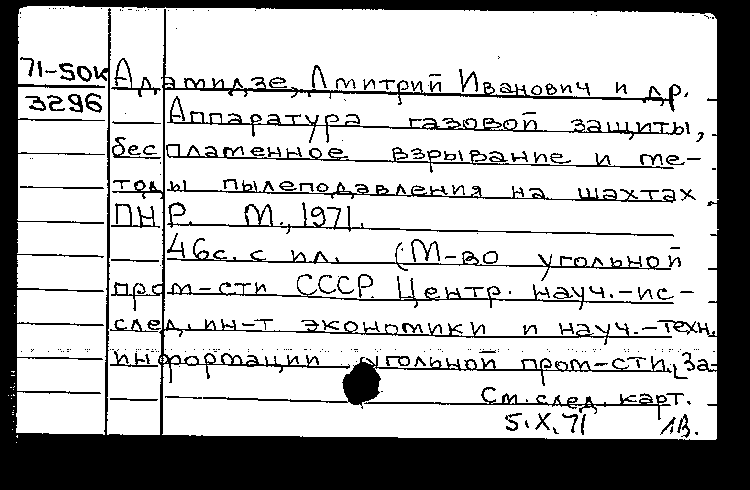 71-50К Адамидзе, Дмитрий Иванович и др.
3296 Аппаратура газовой защиты,
беспламенное взрывание и ме-
тоды пылеподавления на шахтах
ПНР. М., 1971.
46с. с ил. (М-во угольной
пром-сти СССР. Центр. науч.-ис-
след. ин-т экономики и науч.-техн.
информации угольной пром-сти. За-
См. след. карт.
5.X.71 1В.